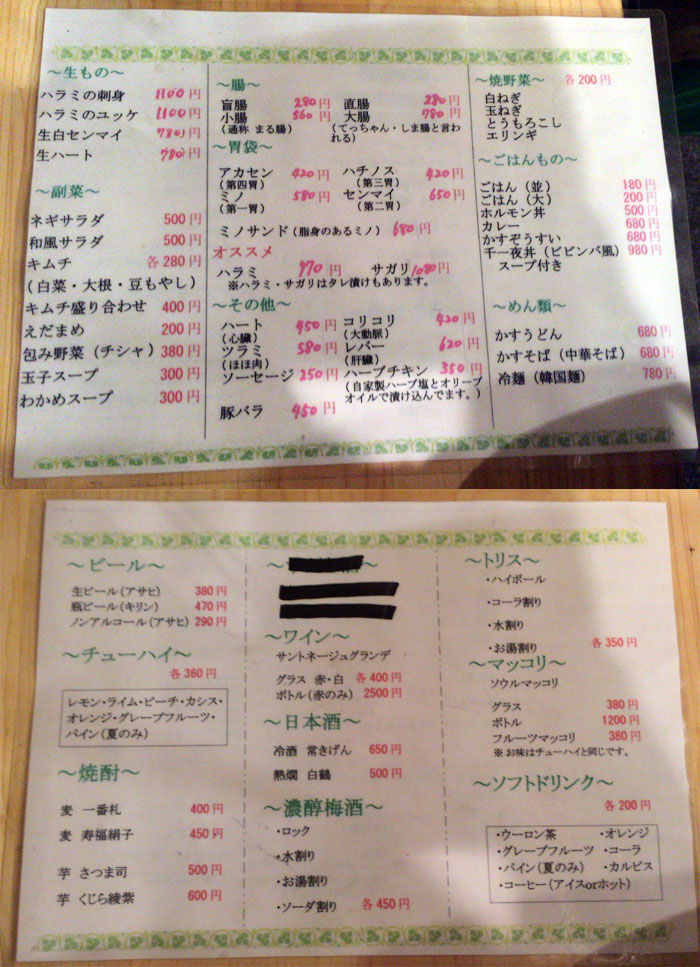 ～生もの～
ハラミの刺身 1100円
ハラミのユッケ 1100円
生白センマイ 780円
生ハート 780円
～副菜～
ネギサラダ 500円
和風サラダ 500円
キムチ 各280円
（白菜・大根・豆もやし）
キムチ盛り合わせ 400円
えだまめ 200円
包み野菜（チシャ） 380円
玉子スープ 300円
わかめスープ 300円
～腸～
盲腸 280円 直腸 280円
小腸 560円 大腸 780円
（通称 まる腸） （てっちゃん・しま腸と言わ
れる）
～胃袋～
アカセン 420円 ハチノス 420円
（第四胃） （第三胃）
ミノ 580円 センマイ 650円
（第一胃） （第二胃）
ミノサンド（脂身のあるミノ） 680円
オススメ
ハラミ 770円 サガリ 1080円
※ハラミ・サガリはタレ漬けもあります。
～その他～
ハート 450円 コリコリ 420円
（心臓） （大動脈）
ツラミ 580円 レバー 620円
（ほほ肉） （肝臓）
ソーセージ 250円 ハーブチキン 350円
（自家製ハーブ塩とオリーブ
オイルで漬け込んでます。）
豚バラ 450円
～焼野菜～ 各200円
白ねぎ
玉ねぎ
とうもろこし
エリンギ
～ごはんもの～
ごはん（並） 180円
ごはん（大） 200円
ホルモン丼 500円
カレー 680円
かすぞうすい 680円
千一夜丼（ビビンバ風） 980円
スープ付き
～めん類～
かすうどん 680円
かすそば（中華そば） 680円
冷麺（韓国麺） 780円
～ビール～
生ビール（アサヒ） 380円
瓶ビール（キリン） 470円
ノンアルコール（アサヒ） 290円
～チューハイ～
各360円
レモン・ライム・ピーチ・カシス・
オレンジ・グレープフルーツ・
パイン（夏のみ）
～焼酎～
麦 一番札 400円
麦 寿福絹子 450円
芋 さつま司 500円
芋 くじら綾紫 600円
～ワイン～
サントネージュグランデ
グラス 赤・白 各400円
ボトル（赤のみ） 2500円
～日本酒～
冷酒 常きげん 650円
熱燗 白鶴 500円
～濃醇梅酒～
・ロック
・水割り
・お湯割り
・ソーダ割り 各450円
～トリス～
・ハイボール
・コーラ割り
・水割り
・お湯割り 各350円
～マッコリ～
ソウルマッコリ
グラス 380円
ボトル 1200円
フルーツマッコリ 380円
※お味はチューハイと同じです。
～ソフトドリンク～
各200円
・ウーロン茶 ・オレンジ
・グレープフルーツ ・コーラ
・パイン（夏のみ） ・カルピス
・コーヒー（アイスorホット）